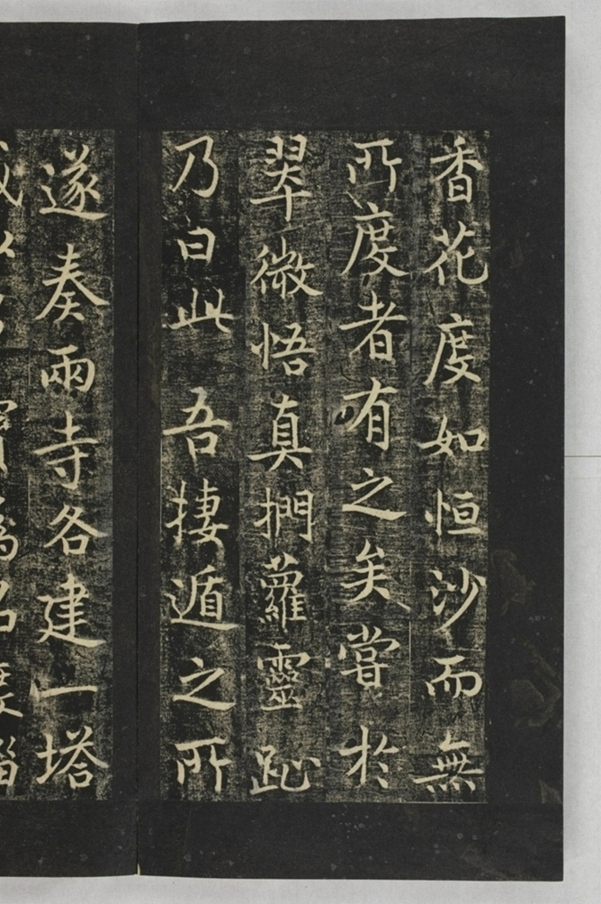 香花度如恒沙而無
所度者有之矣嘗於
翠微悟真捫蘿靈趾
乃曰此吾捿遁之所
遂奏兩寺各建一塔